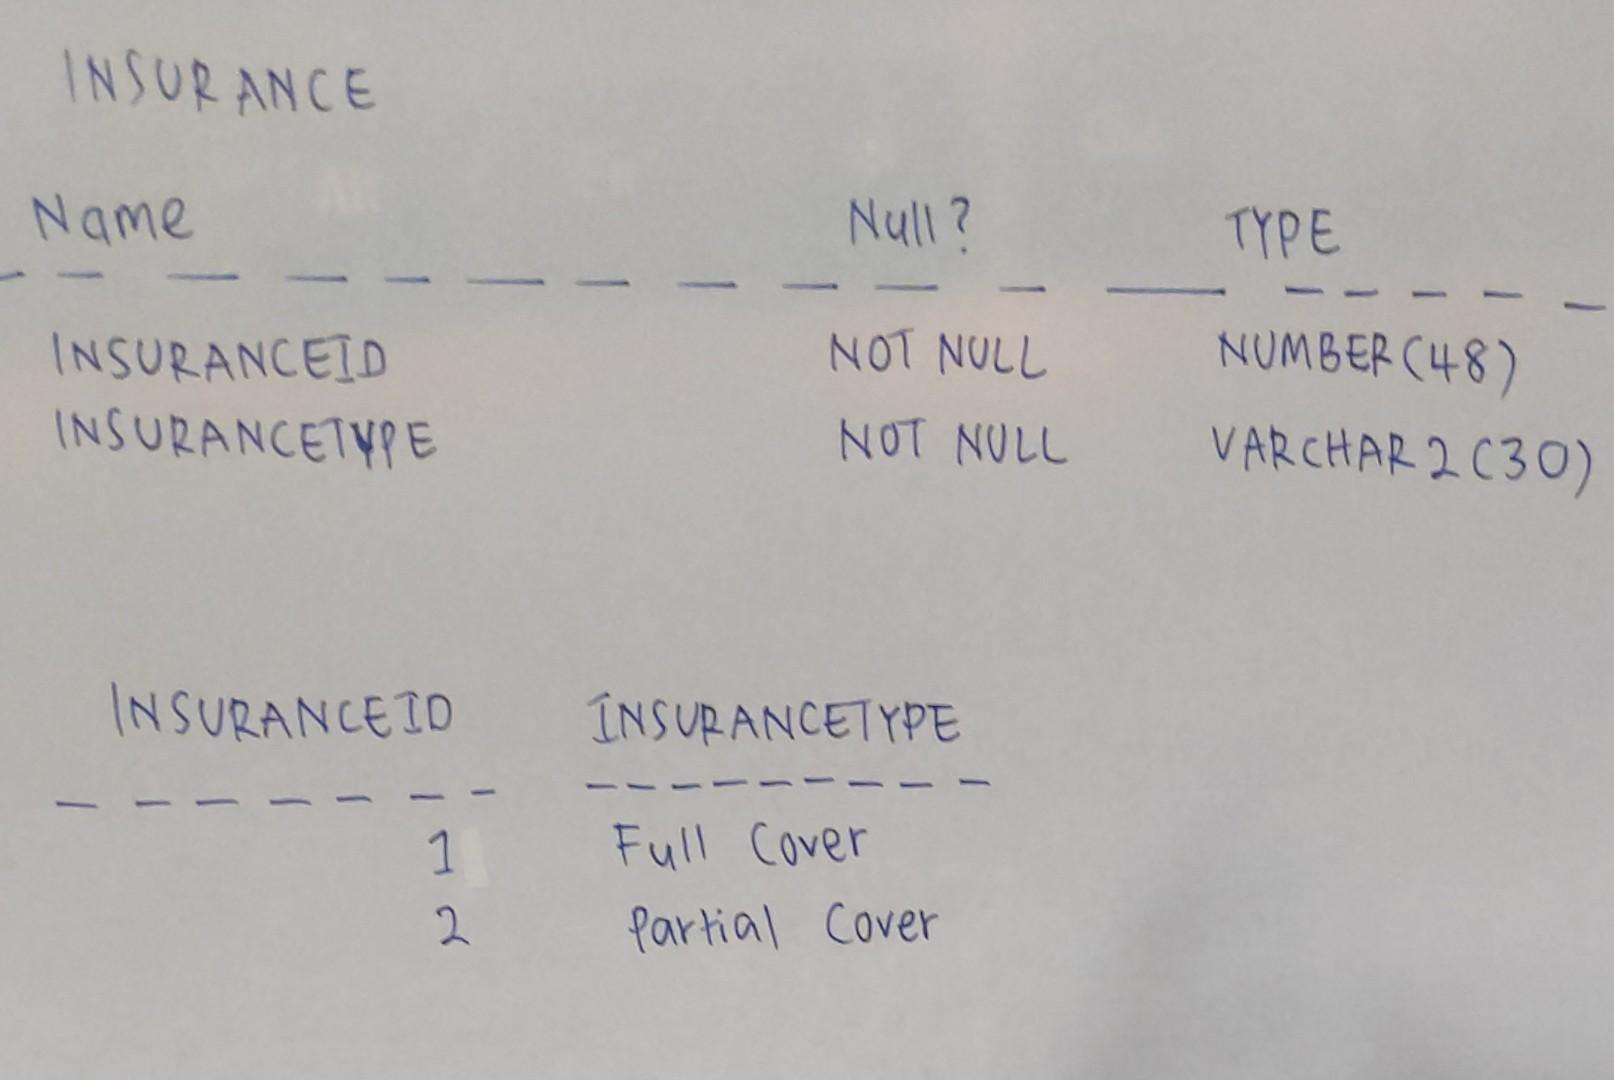 INSURANCE
Name Null? TYPE
INSURANCEID NOT NULL NUMBER(48)
INSURANCETYPE NOT NULL VARCHAR2(30)
INSURANCEID INSURANCETYPE
1 Full Cover
2 Partial Cover